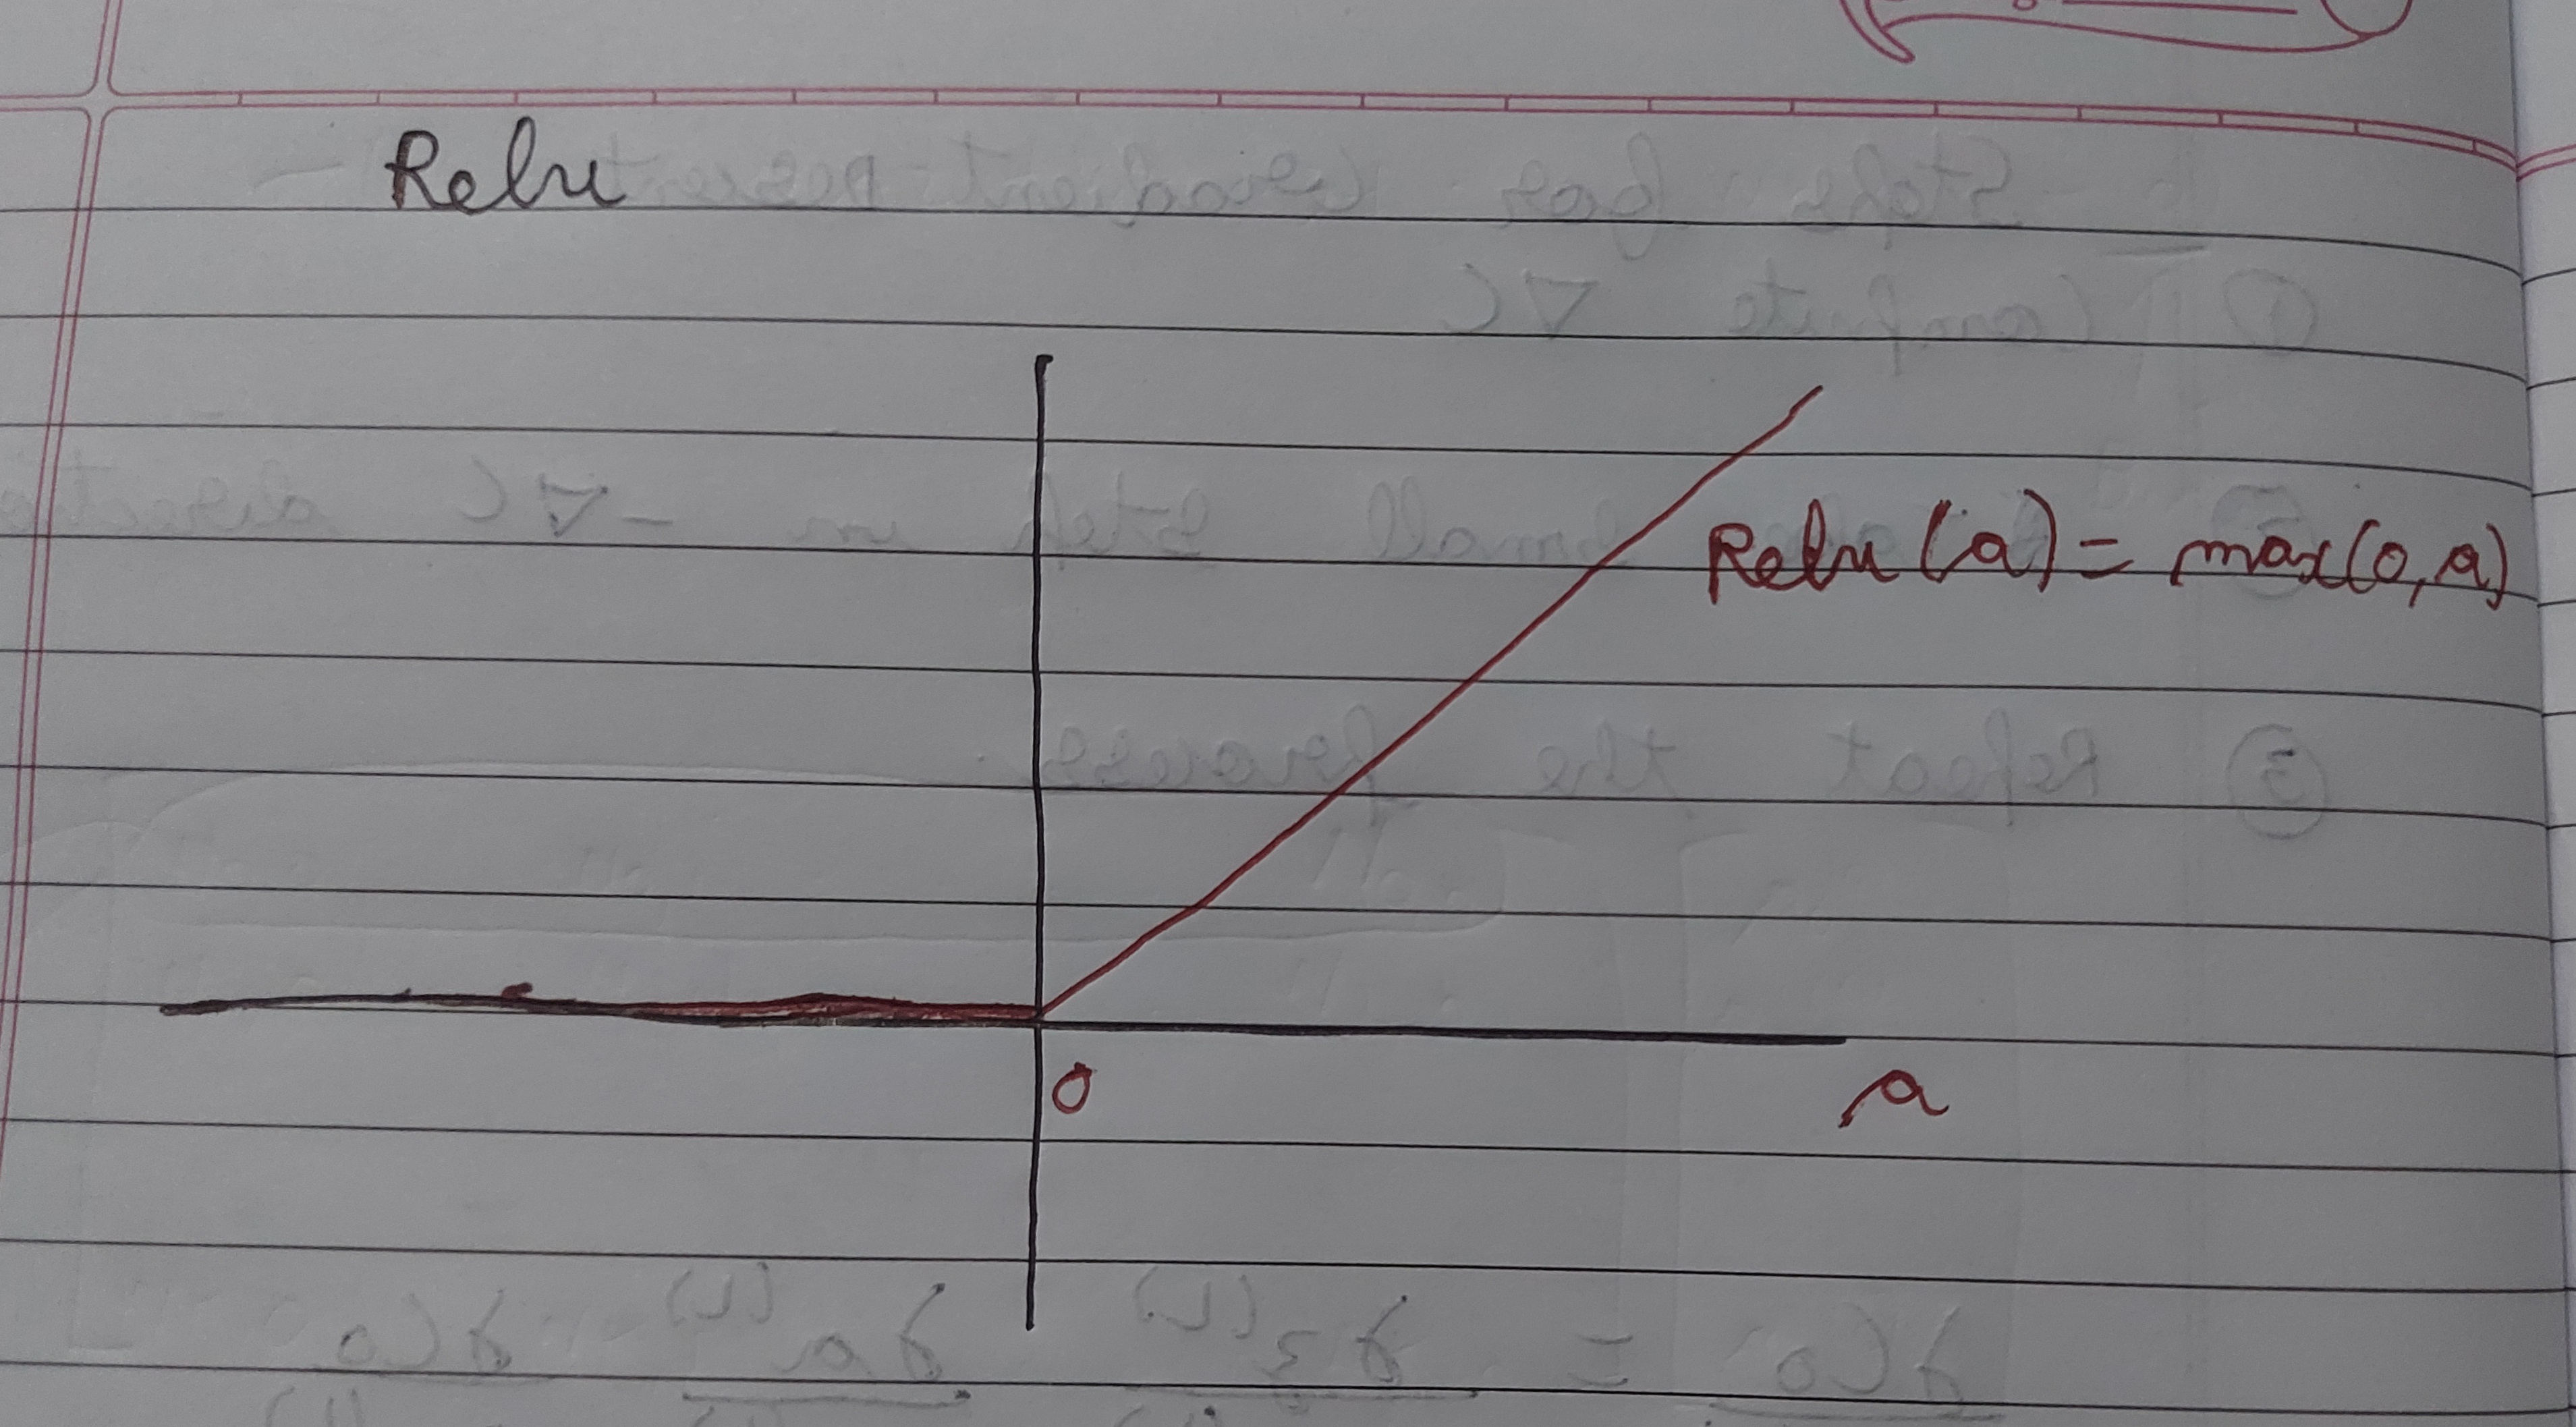 Relu
Relu(a) = max(0,a)
0
a